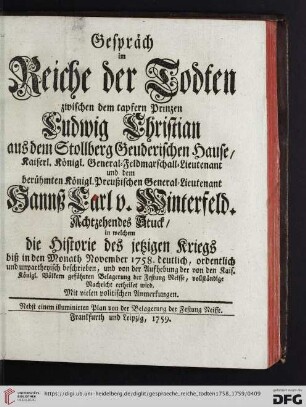 Gespräch
im
Reiche der Todten
zwischen dem tapfern Prinzen
Ludwig Christian
aus dem Stollberg Geuderischen Hause/
Kaiserl. Königl. General-Feldmarschall-Lieutenant
und dem
berühmten Königl. Preußischen General-Lieutenant
Hannß Carl v. Winterfeld.
Achtzehendes Stuck/
in welchem
die Historie des jetzigen Kriegs
biß in den Monath November 1758. deutlich, ordentlich
und unpartheyisch beschrieben, und von der Aufhebung der von den Kais.
Königl. Völkern geführten Belagerung der Festung Neisse, vollständige
Nachricht ertheilet wird.
Mit vielen politischen Anmerkungen.
Nebst einem illuminirten Plan von der Belagerung der Festung Neisse.
Franckfurth und Leipzig, 1759.
UNIVERSITÄTS-
BIBLIOTHEK
HEIDELBERG
https://digi.ub.uni-heidelberg.de/diglit/gespraeche_reiche_todten1758_1759/0409